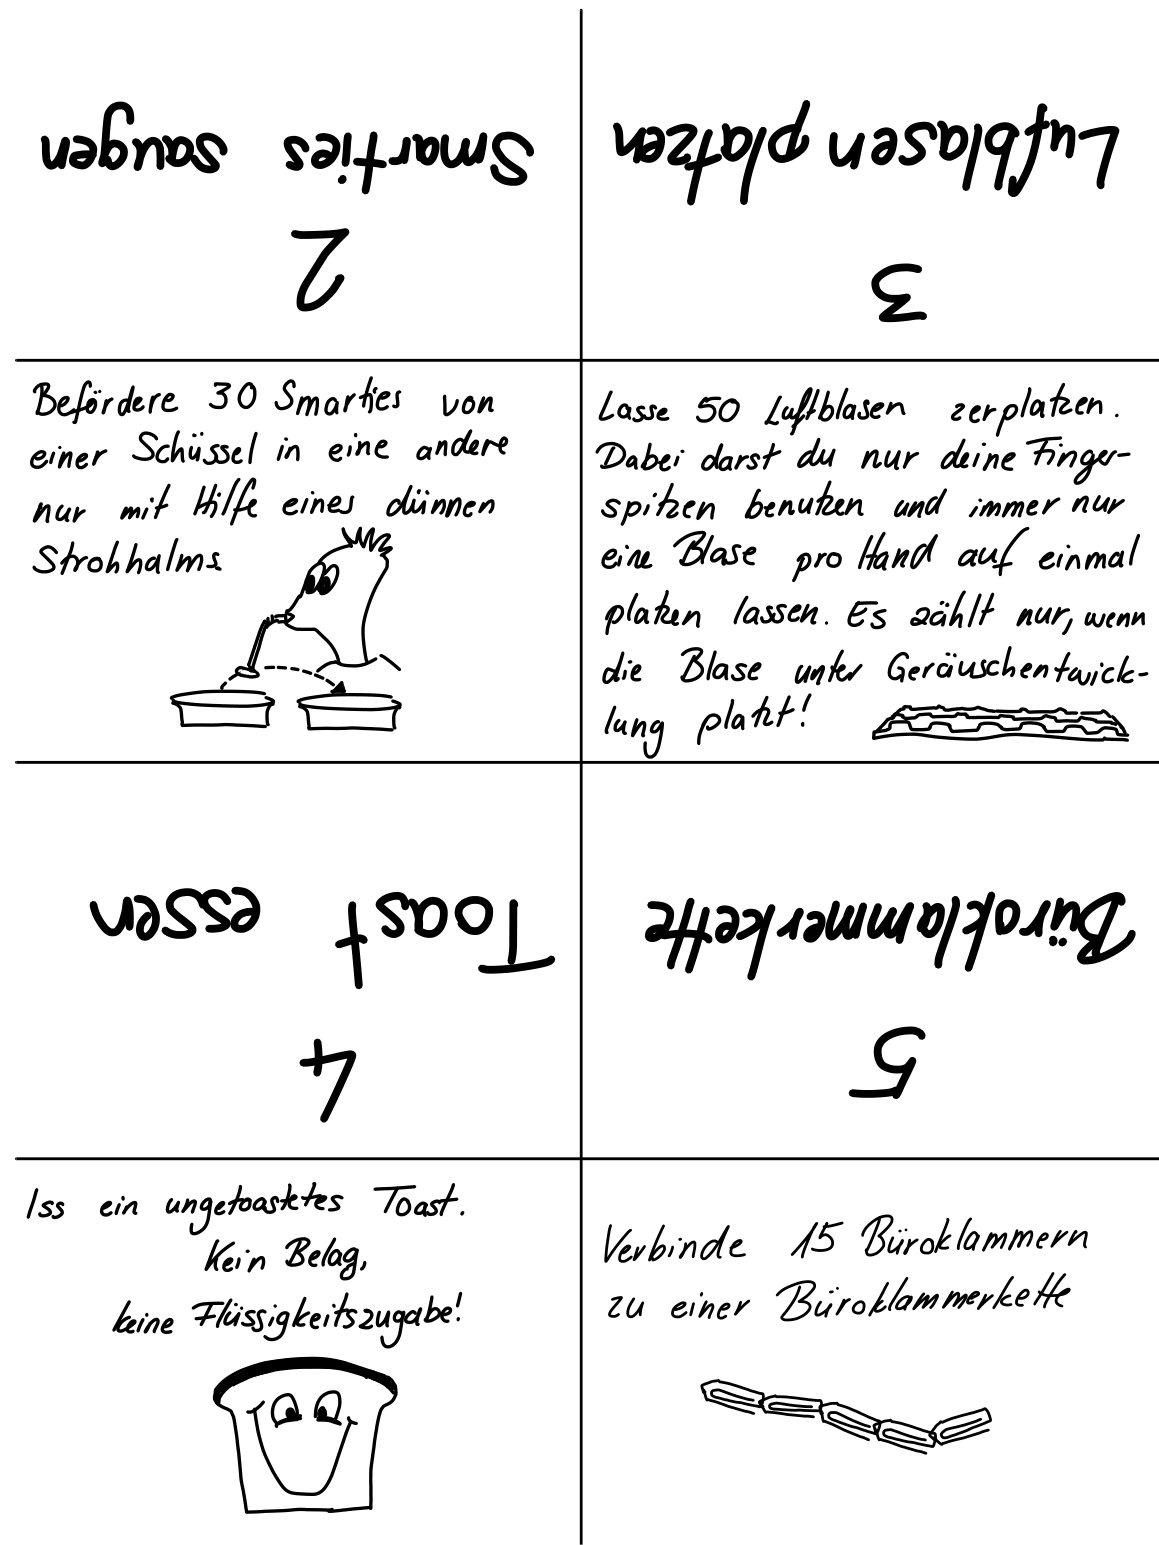 Smarties saugen
2
Lufblasen platzen
3
Befördere 30 Smarties von
einer Schüssel in eine andere
nur mit Hilfe eines dünnen
Strohhalms
Lasse 50 Luftblasen zerplatzen.
Dabei darst du nur deine Finger-
spitzen benutzen und immer nur
eine Blase pro Hand auf einmal
platzen lassen. Es zählt nur, wenn
die Blase unter Geräuschentwick-
lung platzt!
Toast essen
4
Büroklammerkette
5
Iss ein ungetoastetes Toast.
Kein Belag,
keine Flüssigkeitszugabe!
Verbinde 15 Büroklammern
zu einer Büroklammerkette